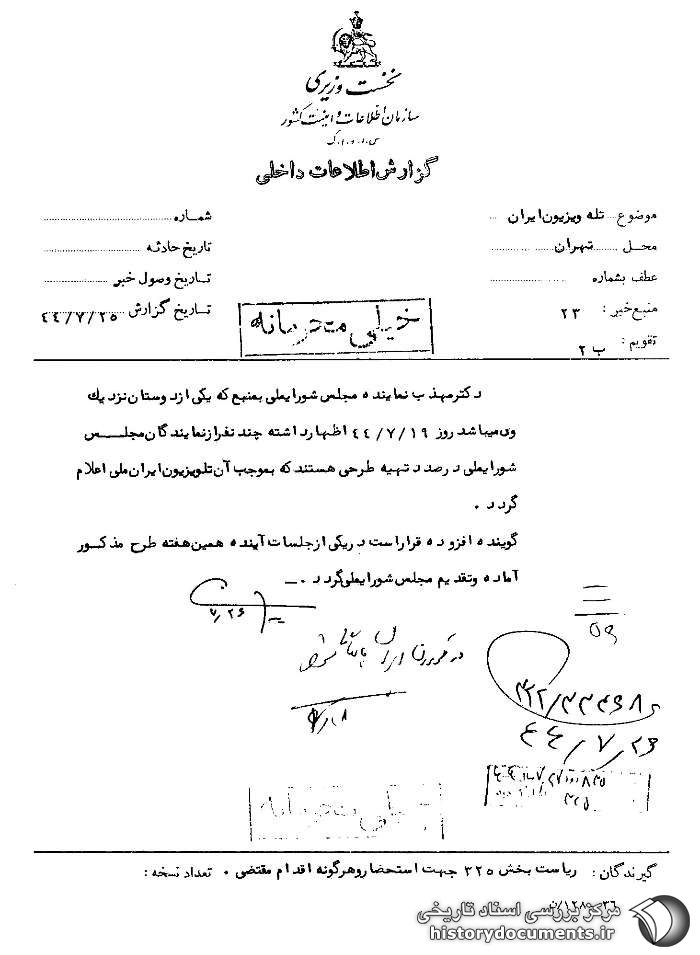 نخست وزیری
سازمان اطلاعات و امنیت کشور
س.ا.و.ا.ک
گزارش اطلاعات داخلی
موضوع تله ویزیون ایران
محل تهران
عطف بشماره
منبع خبر: ۲۳
تقویم: ب ۲
شماره
تاریخ حادثه
تاریخ وصول خبر
تاریخ گزارش ۴۴/۷/۲۵
خیلی محرمانه
دکتر مهذب نماینده مجلس شورایملی بمنبع که یکی از دوستان نزدیك
وی میباشد روز ۴۴/۷/۱۹ اظهار داشته چند نفر از نمایندگان مجلس
شورایملی در صدد تهیه طرحی هستند که بموجب آن تلویزیون ایران ملی اعلام
گردد .
گوینده افزوده قرار است در یکی از جلسات آینده همین هفته طرح مذکور
آماده و تقدیم مجلس شورایملی گردد .
۷/۲۶
۴۴/۷/۲۶
خیلی محرمانه
گیرندگان: ریاست بخش ۳۲۵ جهت استحضار و هرگونه اقدام مقتضی . تعداد نسخه:
مرکز بررسی اسناد تاریخی
historydocuments.ir